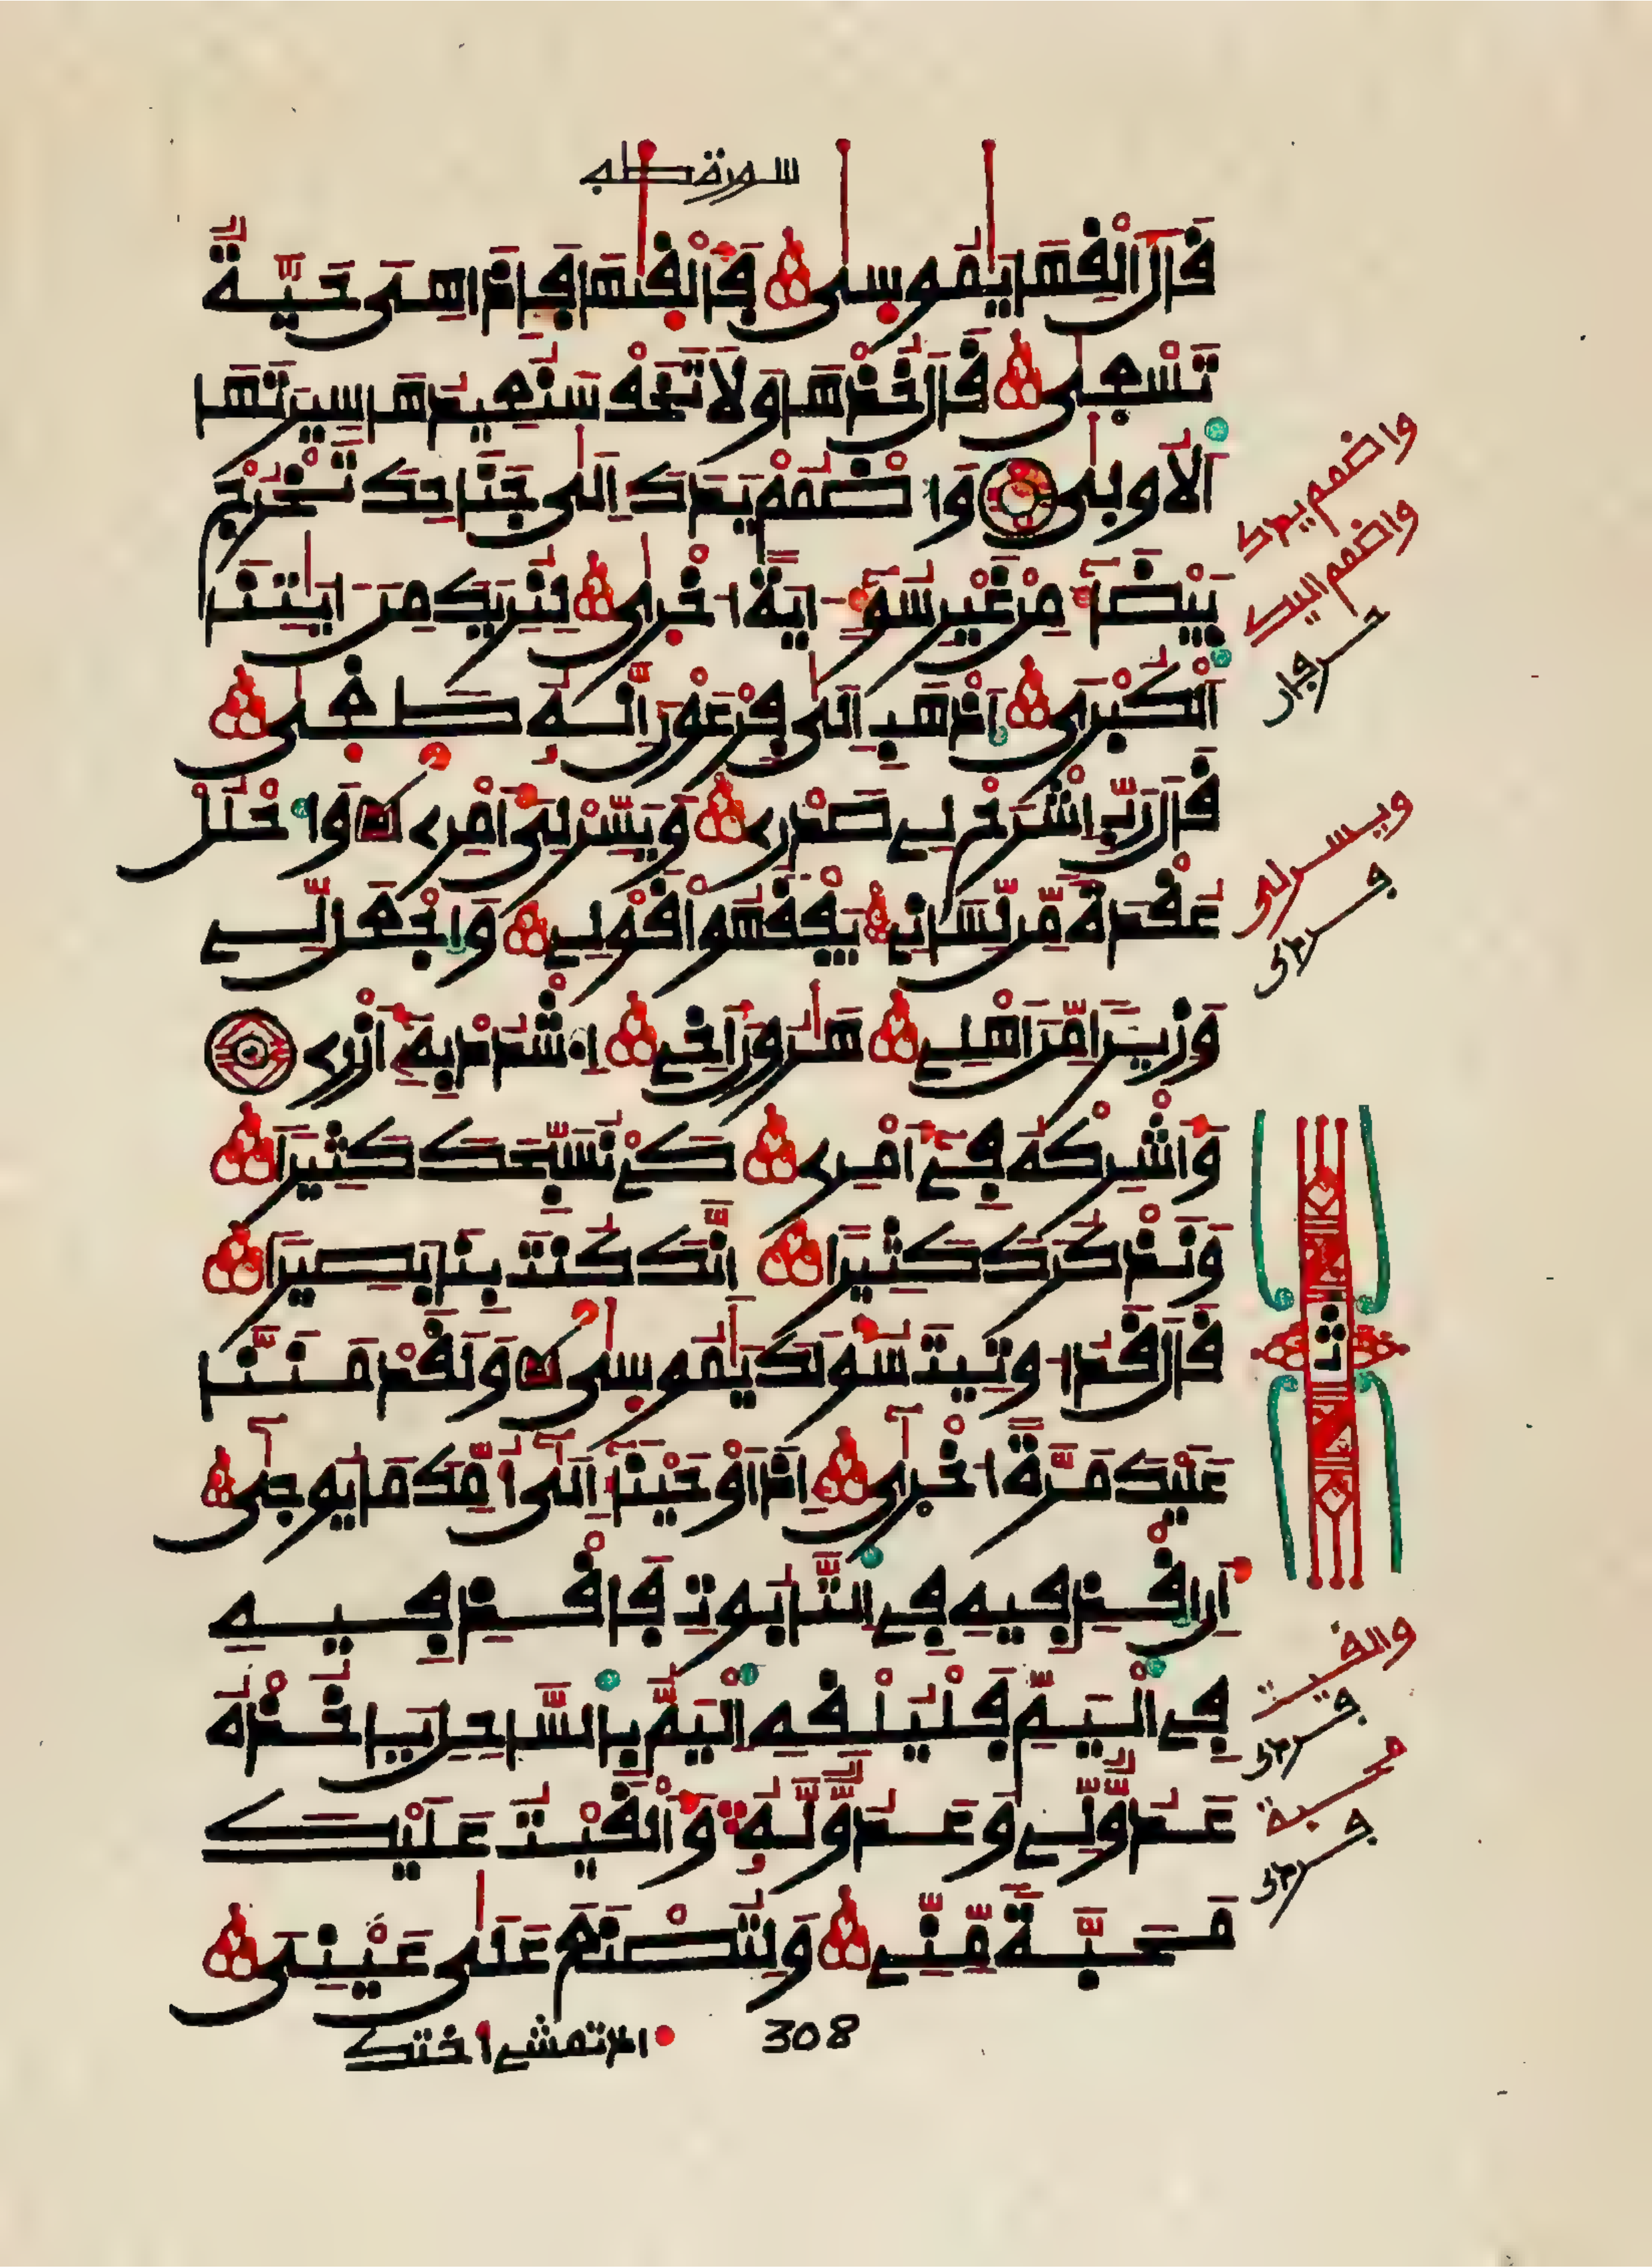 سورة طه
قَالَ أَلْقِهَا يَٰمُوسَىٰ فَأَلْقَىٰهَا فَإِذَا هِيَ حَيَّةٌ
تَسْعَىٰ قَالَ خُذْهَا وَلَا تَخَفْ سَنُعِيدُهَا سِيرَتَهَا
اَلُاولَىٰ وَاضْمُمْ يَدَكَ إِلَىٰ جَنَاحِكَ تَخْرُجْ
بَيْضَآءَ مِنْ غَيْرِ سُوٓءٍ ـايَةً اخْرَىٰ لِنُرِيَكَ مِنَ ـايَٰتِنَا
اَلْكُبْرَى اَذْهَبِ اِلَىٰ فِرْعَوْنَ إِنَّهُۥ طَغَىٰ
قَالَ رَبِّ اِشْرَحْ لِے صَدْرِے وَيَسِّرْ لِيَ أَمْرِے وَاحْلُلْ
عُقْدَةً مِّن لِّسَانِے يَفْقَهُوا قَوْلِے وَاجْعَل لِّے
وَزِيرًا مِّنَ اَهْلِے هَٰرُونَ أَخِے اِ۟شْدُدْ بِهِۦٓ أَزْرِے
وَأَشْرِكْهُ فِےٓ أَمْرِے كَےْ نُسَبِّحَكَ كَثِيرًا
وَنَذْكُرَكَ كَثِيرًا اِنَّكَ كُنتَ بِنَا بَصِيرًا
قَالَ قَدُ اوتِيتَ سُؤْلَكَ يَٰمُوسَىٰ وَلَقَدْ مَنَنَّا
عَلَيْكَ مَرَّةً اخْرَىٰٓ إِذَ اَوْحَيْنَآ إِلَىٰٓ أُمِّكَ مَا يُوحَىٰٓ
أَنِ اِقْذِفِيهِ فِے اِلتَّابُوتِ فَاقْذِفِيهِ
فِے اِلْيَمِّ فَلْيُلْقِهِ اِلْيَمُّ بِالسَّاحِلِ يَاخُذْهُ
عَدُوٌّ لِّے وَعَدُوٌّ لَّهُۥ وَأَلْقَيْتُ عَلَيْكَ
مَحَبَّةً مِّنِّے وَلِتُصْنَعَ عَلَىٰ عَيْنِيَ
واضمم يدك
واضمم اليك
ويسر لى
ثمن
والقيت
محبة
308 إذ تمشے أختك